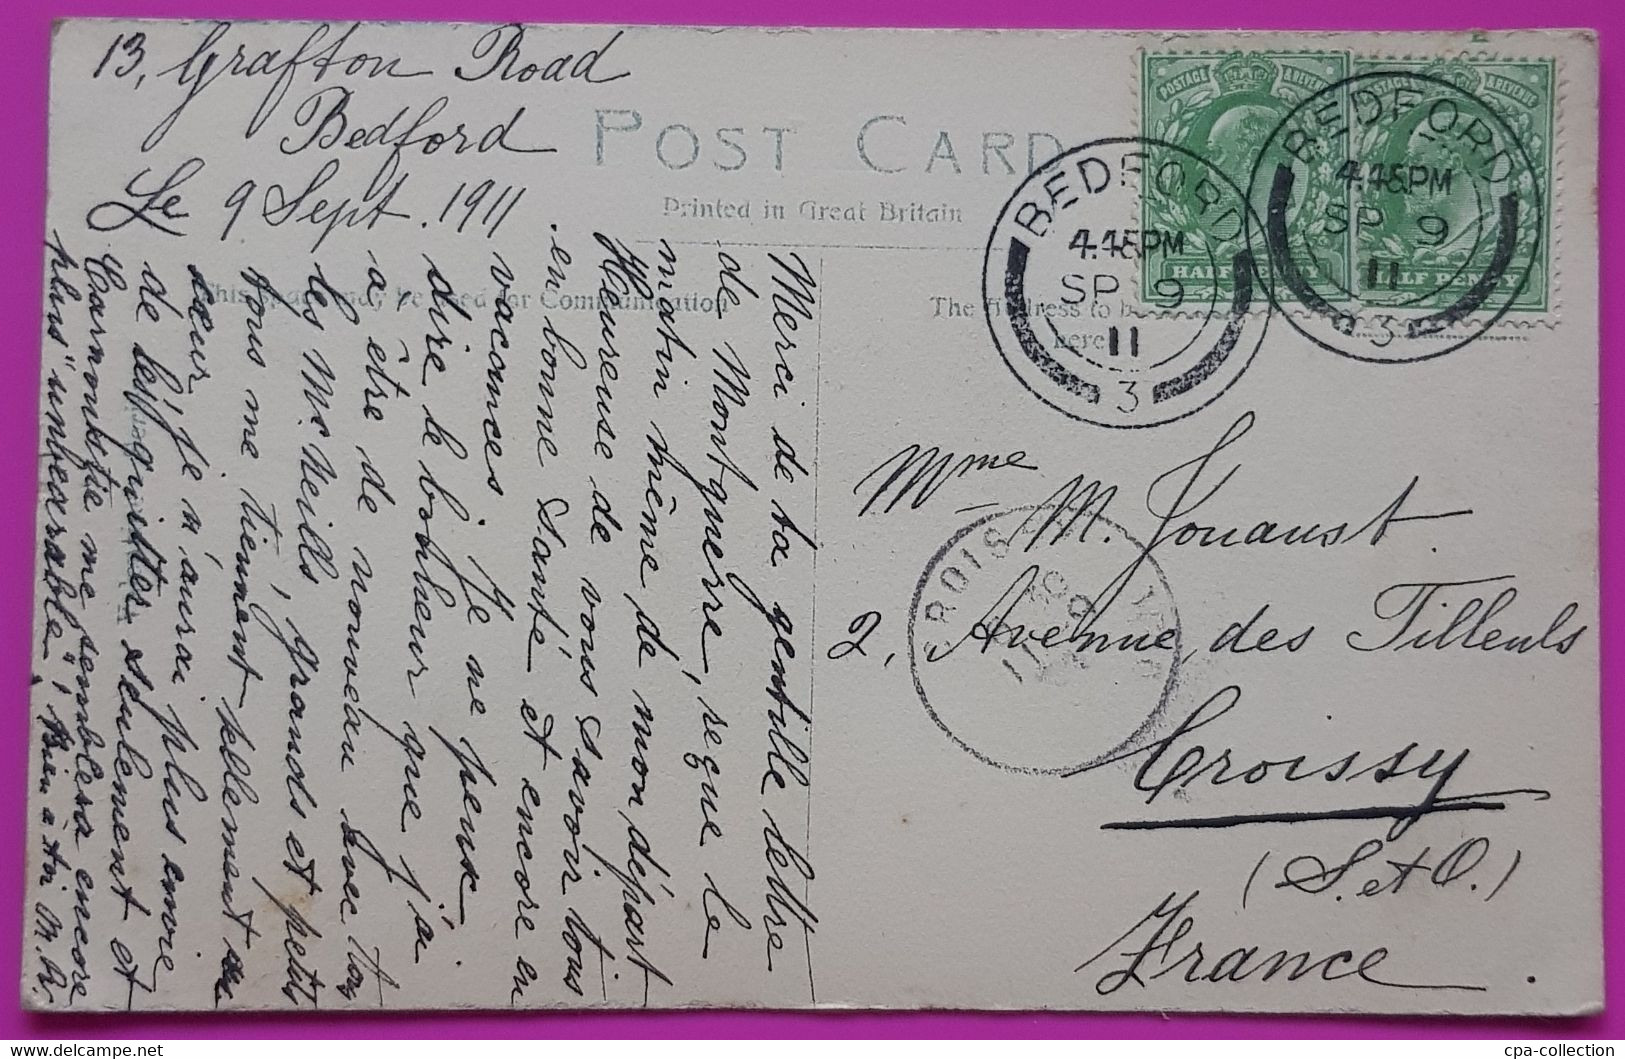 13, Grafton Road
Bedford
Le 9 Sept. 1911
POST CARD
Printed in Great Britain
This space may be used for Communication
The Address to be
here
Merci de ta gentille lettre
de Montguerre, reçue le
matin même de mon départ
Heureuse de vous savoir tous
en bonne santé et encore en
vacances. Je ne peux
dire le bonheur que j'ai
à être de nouveau avec
les McNeills, grands et petits
tous me tiennent tellement au
cœur. Je n'aurai plus envie
de les quitter seulement et
Carnoustie me semblera encore
plus "unbearable", Bien à toi M.
Mme M. Jouaust.
2, Avenue des Tilleuls
Croissy
(S. et O.)
France.
POSTAGE & REVENUE
HALF PENNY
POSTAGE & REVENUE
HALF PENNY
BEDFORD
4.45PM
SP 9
11
3
BEDFORD
4.45PM
SP 9
11
3
CROISSY
cpa-collection